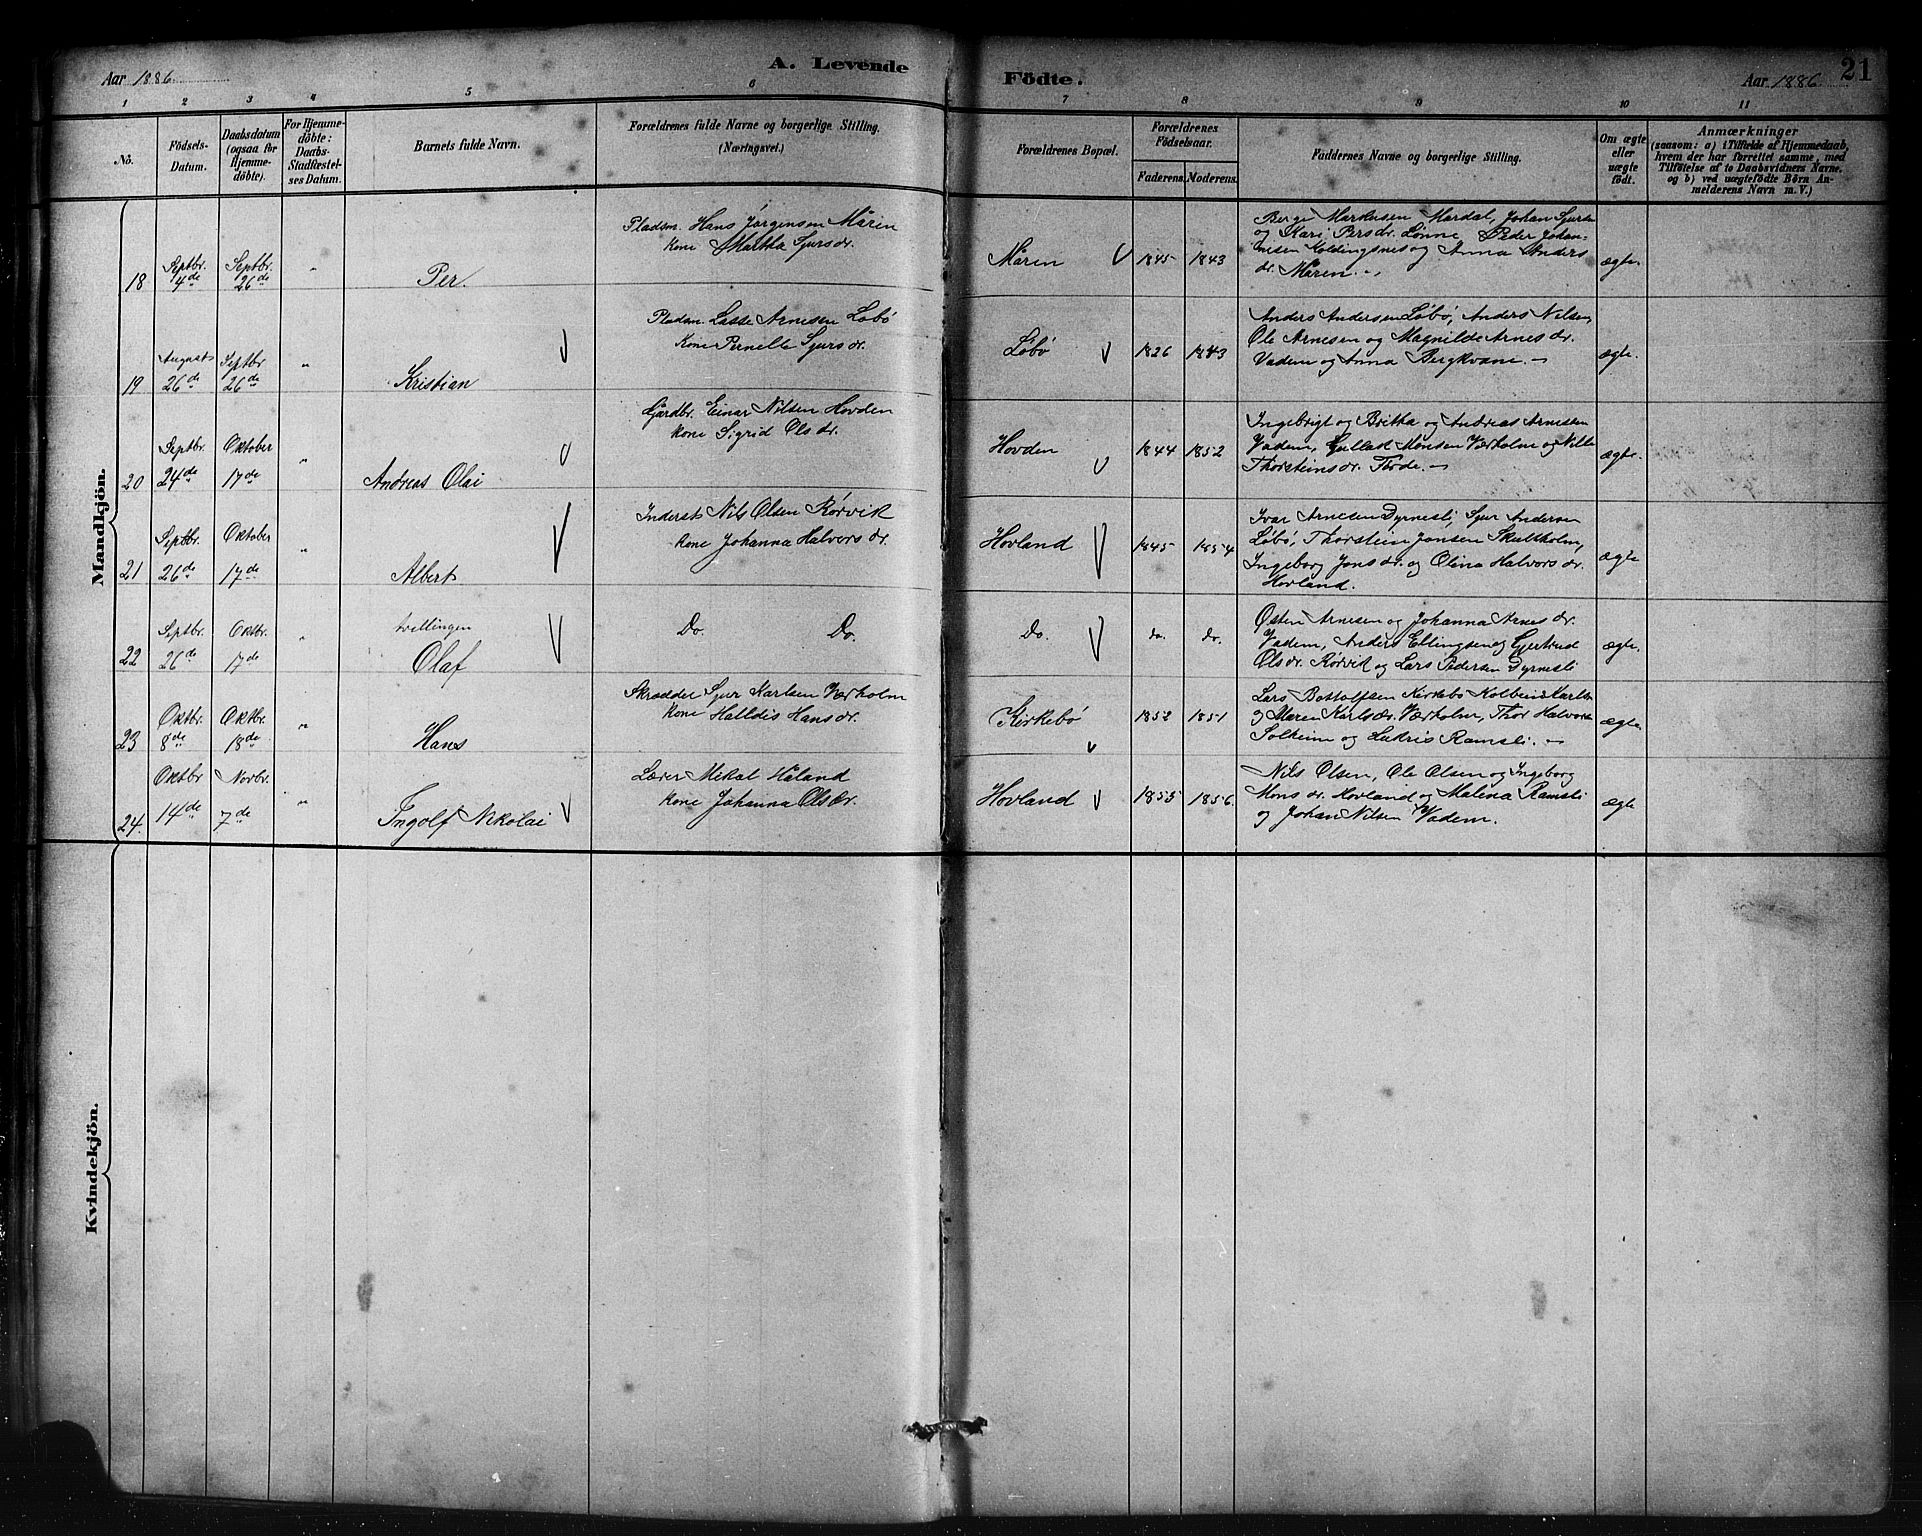 Aar 1886
A. Levende
Födte.
Aar 1886
21
1 2 3 4 5 6 7 8 9 10 11
No.
Födsels-
Datum.
Daabsdatum
(ogsaa for
Hjemme-
döbte).
For Hjemme-
döbte:
Daabs-
Stadfæstel-
ses Datum.
Barnets fulde Navn.
Forældrenes fulde Navne og borgerlige Stilling.
(Næringsvei.)
Forældrenes Bopæl.
Forældrenes
Födselsaar.
Faderens. Moderens.
Faddernes Navne og borgerlige Stilling.
Om ægte
eller
uægte
født.
Anmærkninger
(saasom: a) i Tilfælde af Hjemmedaab,
hvem der har forrettet samme, med
Tilföielse af to Daabsvidners Navne,
og b) ved uægtefödte Börn An-
melderens Navn m. V.)
Mandkjön.
18
Septbr.
4de
Septbr.
26de
"
Per.
Pladsm. Hans Jørgensen Måren
kone Martha Sjursdr.
Måren
1845 1843
Berge Markusen Mardal, Johan Sjursen
og Kari Persdr. Lønne Peder Johan-
nesen Koldingsnes og Anna Anders
dr. Måren.
ægte
19
August
26de
Septbr
26de
"
Kristian
Pladsm. Lasse Arnesen Løbø
kone Pernelle Sjursdr.
Løbø
1826 1843
Anders Andersen Løbø, Anders Nilsen,
Ole Arnesen og Magnilde Arnes dr.
Vadem og Anna Bergkvam.
ægte.
20
Septbr.
24de
Oktober
17de
"
Andreas Olai
Gårdbr. Einar Nilsen Hovden
kone Sigrid Olsdr.
Hovden
1844 1852
Ingebrigt og Britha og Andreas Arnesen
Vadem, Gullad Monsen Værholm og Nille
Thorsteinsdr. Thode.
ægte.
21
Septbr.
26de
Oktober
17de
"
Albert
Inderst Nils Olsen Rørvik
kone Johanna Halvorsdr.
Hovland
1845 1854
Ivar Arnesen Dyrnesli, Sjur Andersen
Løbø, Thorstein Jonsen Skattholm,
Ingeborg Jonsdr. og Olina Halvors dr.
Hovland.
ægte
22
Septbr.
26de
Oktbr.
17de
"
tvillingen
Olaf
Do. Do.
Do.
do. do.
Østen Arnesen og Johanna Arnes dr.
Vadem, Anders Ellingsen og Gjertrud
Olsdr. Rørvik og Lars Pedersen Dyrnesli
ægte.
23
Oktbr.
8de
Oktbr.
18de
"
Hans
Skrædder Sjur Karlsen Værholm
kone Halldis Hansdr.
Kirkebø
1852 1851
Lars Bottolfsen Kirkebø Kolbein Karlsen
og Maren Karlsdr. Værholm, Thor Halvorsen
Solheim og Lukris Ramsli.
ægte.
24.
Oktbr
14de
Novbr.
7de
"
Ingolf Nikolai
Lærer Mikal Håland
kone Johanna Olsdr.
Hovland
1855 1856.
Nils Olsen, Ole Olsen og Ingeborg
Mons dr. Hovland og Malena Ramsli
og Johan Nilsen Vadem.
ægte
Kvindekjön.